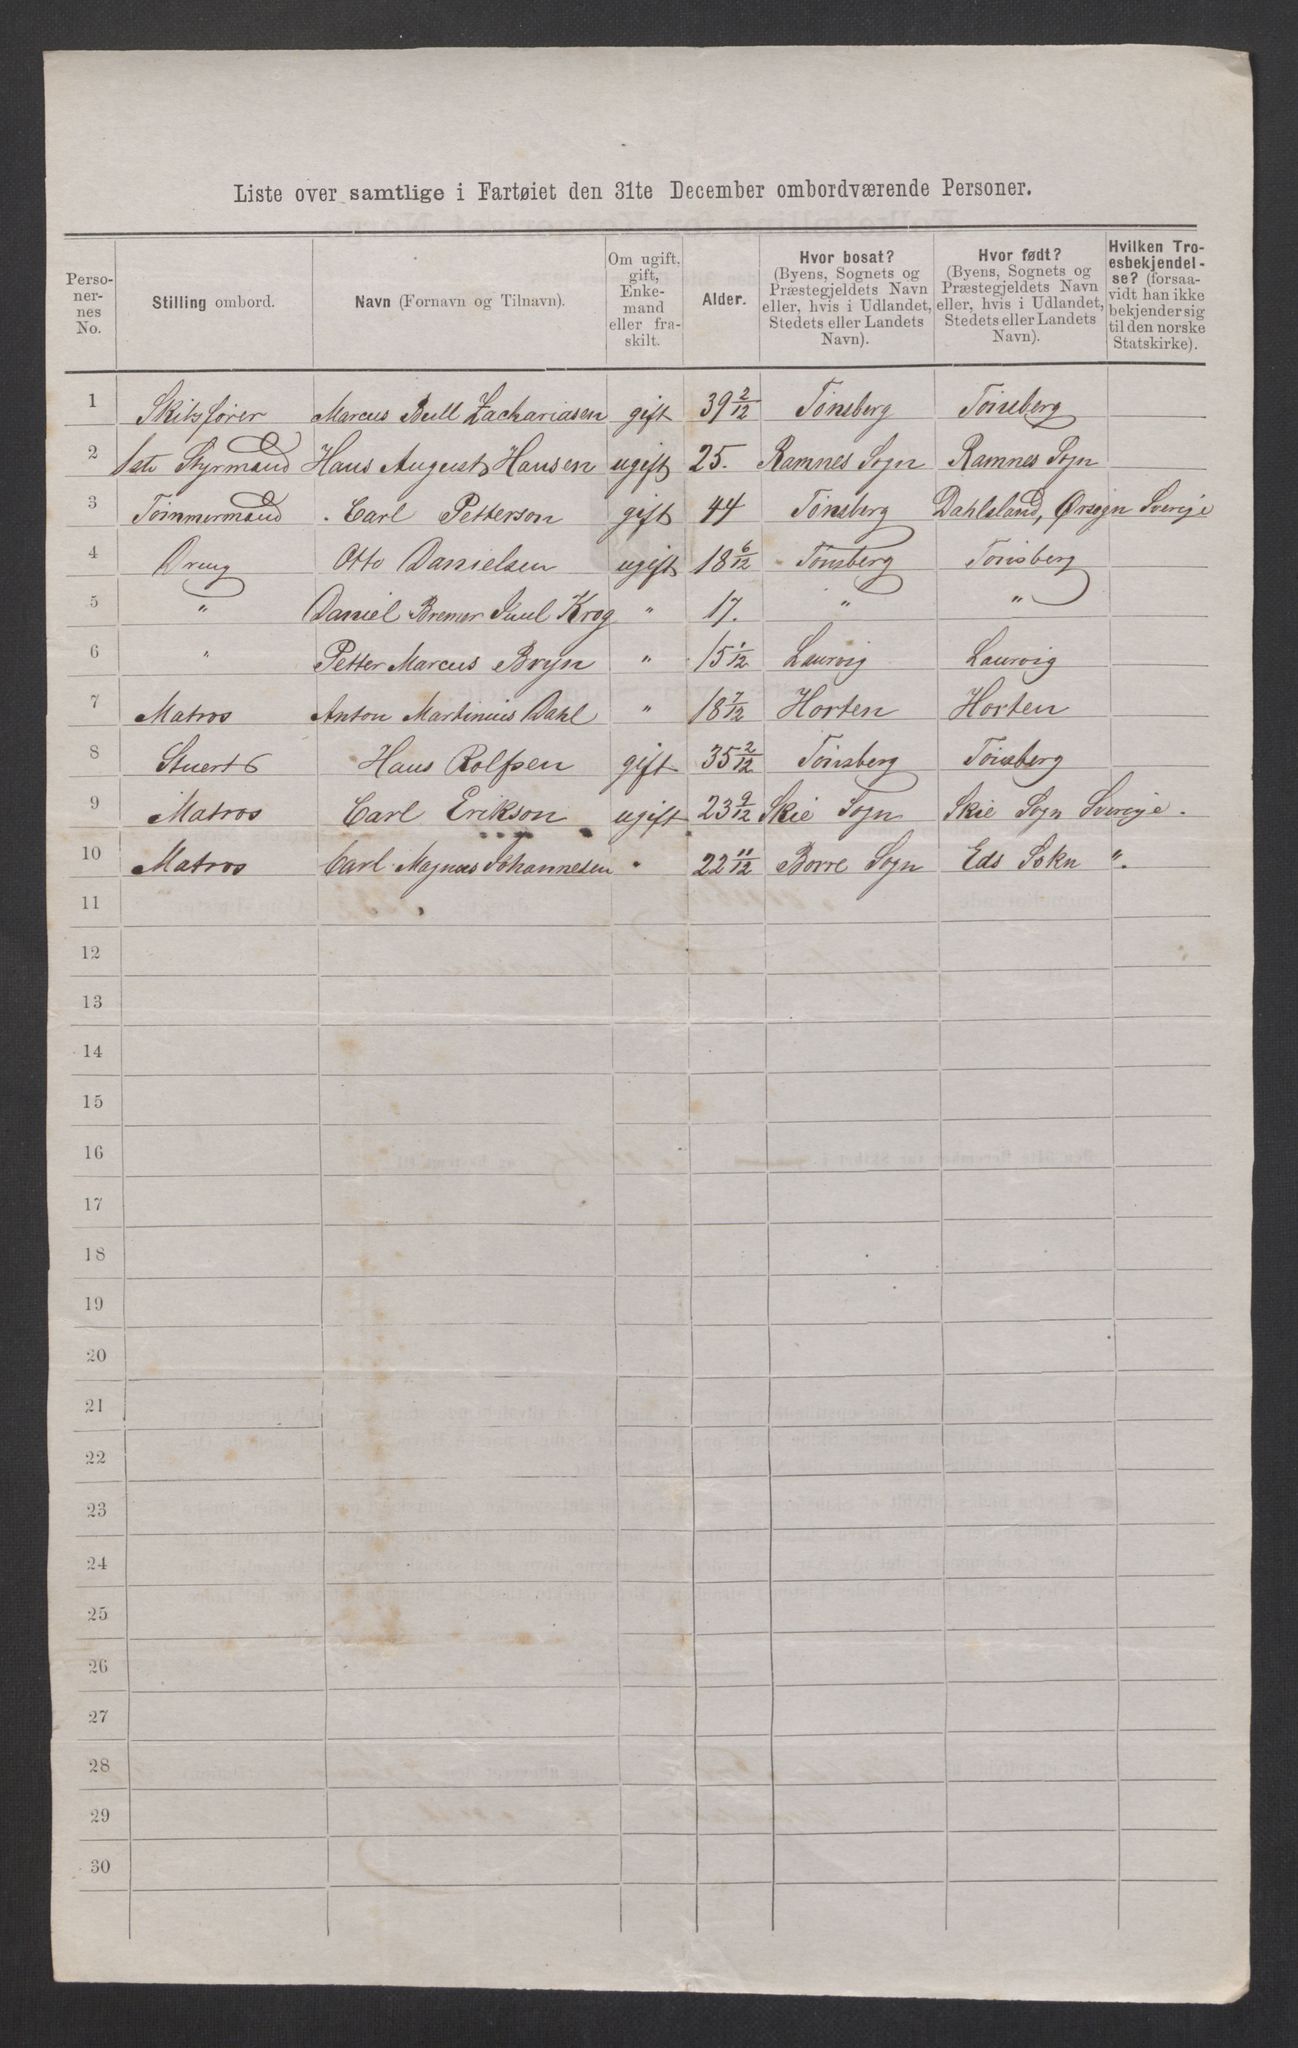 Liste over samtlige i Fartøiet den 31te December ombordværende Personer.
Personernes No. | Stilling ombord. | Navn (Fornavn og Tilnavn). | Om ugift, gift, Enkemand eller fraskilt. | Alder. | Hvor bosat? (Byens, Sognets og Præstegjeldets Navn eller, hvis i Udlandet, Stedets eller Landets Navn). | Hvor født? (Byens, Sognets og Præstegjeldets Navn eller, hvis i Udlandet, Stedets eller Landets Navn). | Hvilken Troesbekjendelse? (forsaavidt han ikke bekjender sig til den norske Statskirke).
1 Skibsfører Marcus Bull Zachariasen gift 39 2/12 Tönsberg Tönsberg
2 1ste Styrmand Hans August Hansen ugift 25. Ramnes Sogn Ramnes Sogn
3 Tömmermand Carl Petterson gift 44 Tönsberg Dahlsland, Ørsogn Sverige
4 Dreng Otto Danielsen ugift 18 6/12 Tönsberg Tönsberg
5 " Daniel Bremer Juul Krog " 17. " "
6 " Petter Marcus Bryn " 15 1/12 Laurvig Laurvig
7 Matros Anton Martinius Dahl " 18 7/12 Horten Horten
8 Stuert Hans Rolfsen gift 35 2/12 Tönsberg Tönsberg
9 Matros Carl Erikson ugift 23 9/12 Skie Sogn Skie Sogn Sverige.
10 Matros Carl Magnus Johannesen " 22 11/12 Borre Sogn Eds Sokn ".
11
12
13
14
15
16
17
18
19
20
21
22
23
24
25
26
27
28
29
30